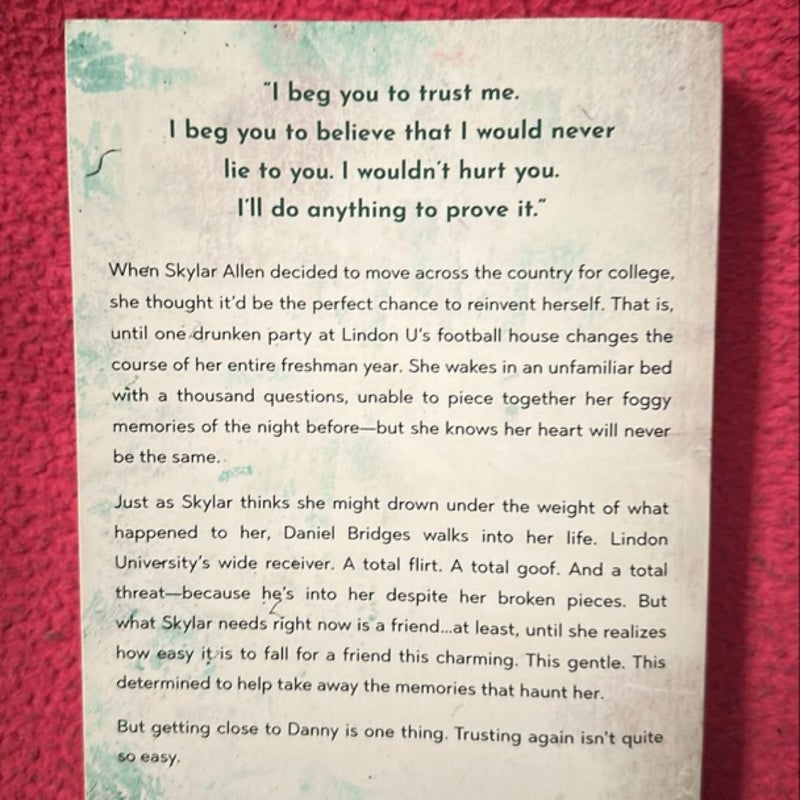 "I beg you to trust me.
I beg you to believe that I would never
lie to you. I wouldn't hurt you.
I'll do anything to prove it."
When Skylar Allen decided to move across the country for college,
she thought it'd be the perfect chance to reinvent herself. That is,
until one drunken party at Lindon U's football house changes the
course of her entire freshman year. She wakes in an unfamiliar bed
with a thousand questions, unable to piece together her foggy
memories of the night before—but she knows her heart will never
be the same.
Just as Skylar thinks she might drown under the weight of what
happened to her, Daniel Bridges walks into her life. Lindon
University's wide receiver. A total flirt. A total goof. And a total
threat—because he's into her despite her broken pieces. But
what Skylar needs right now is a friend...at least, until she realizes
how easy it is to fall for a friend this charming. This gentle. This
determined to help take away the memories that haunt her.
But getting close to Danny is one thing. Trusting again isn't quite
so easy.